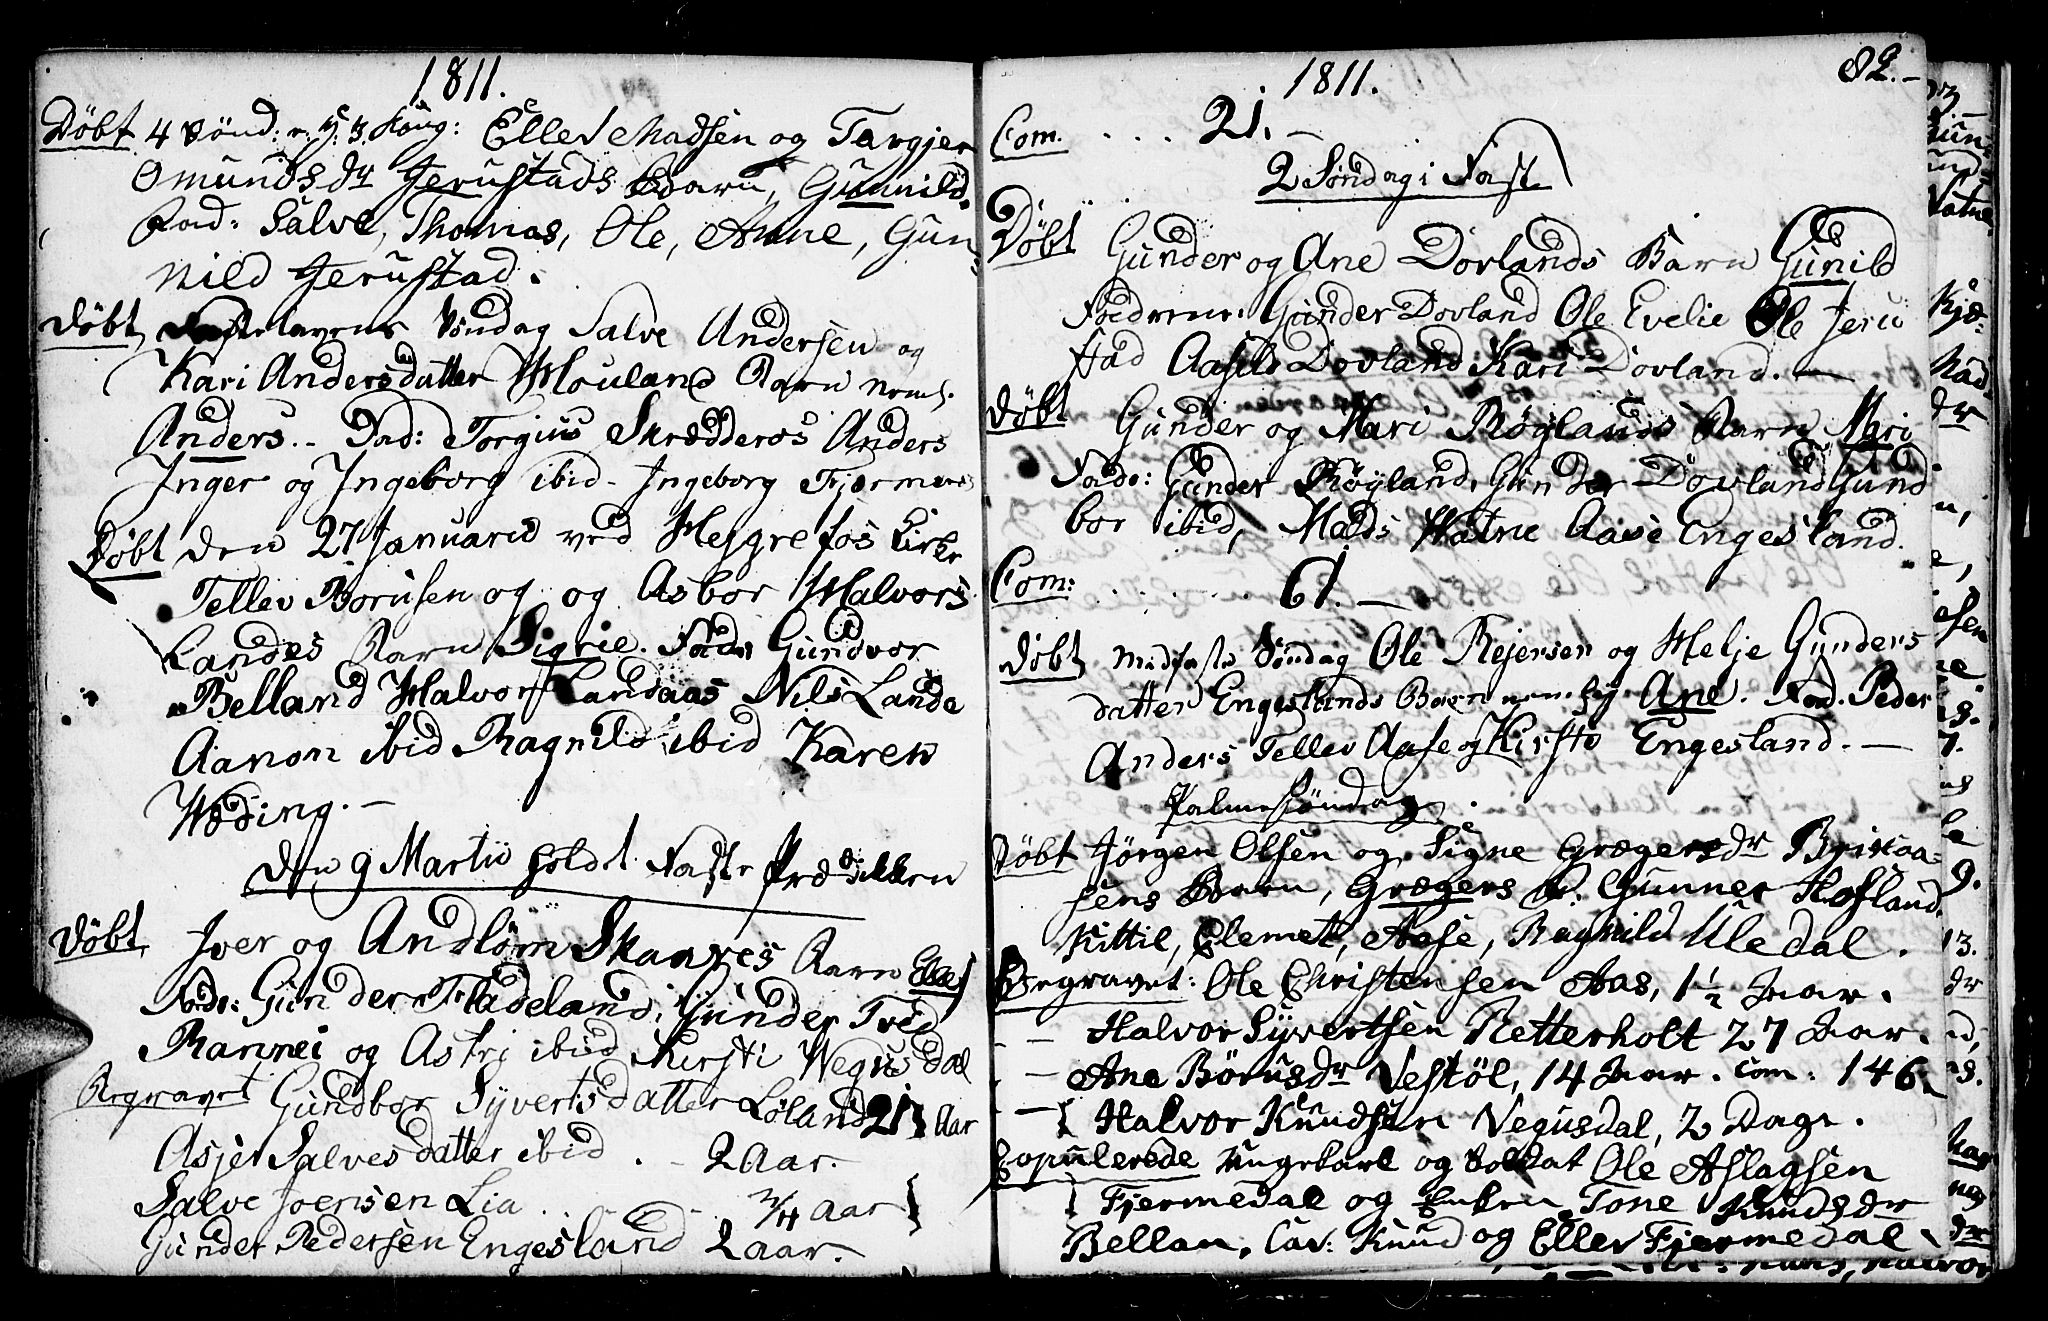 1811.
Döbt 4 Sönd: e. H. 3. Kong: Ellef Madsen og Targjer
Omunds dr Jerustads Barn, Gunnild.
Fad: Salve, Thomas, Ole, Anne, Gun-
nild Jerustad.
Döbt Fastelavens Söndag Salve Andersen og
Kari Andersdatter Mouland Barn neml.
Anders. - Fad: Torgius Skrædderos Anders
Inger og Ingeborg ibid - Ingeborg
Döbt den 27 Januarii ved Hesgrefos Kirke
Tellev Börusen og og Asbor Halvors
Landes Barn Sigrie. Fad: Gundvor
Belland Halvor Landaas Nils Lande
Aanon ibid Ragnild ibid Karen
Wæding. -
Den 9 Martii holdt Faste Prædikken
Döbt Iver og Andlöm Skaares Barn Ellef
Fadr: Gunder Fladeland, Gunder Tved
Rannei og Astri ibid Kirsti Wegusdal
Begravet Gundbor Syvertsdatter Löland 21 Aar
Asjer Salvesdatter ibid . - 2 Aar.
Salve Joensen Lia . . 3/4 Aar
Gunder Pedersen Engesland 2 Aar.
1811. 82. -
Com. . . . 21. -
2 Söndag i Fast.
Döbt Gunder og Ane Dovlands Barn Gunild
Faddrene: Gunder Dovland Ole Evelie Ole Jeru
stad Aasild Dovland Kari Dovland. -
Döbt Gunder og Mari Röylands Barn Mari
Fadr: Gunder Röyland, Gunder Dovland Gund
bor ibid, Mads Watne Aase Engesland.
Com: . . . . . 61. -
Döbt Midfaste Söndag Ole Rejersen og Helje Gunders
datter Engeslands Barn neml. Ane. Fad. Peder
Anders Tellev Aase og Kirste Engesland. -
Palmesöndag.
Döbt Jörgen Olsen og Signe Grægersdr Briskaa-
sens Barn, Grægers F: Gunner Hofland.
Kittil, Clemet, Aase, Ragnild Uledal.
Begravet: Ole Christensen Aas, 1½ Aar.
- - Halvor Syvertsen Retterholt 27 Aar.
- Ane Börusdr Vestöl, 14 Aar. Com: 146.
- Halvor Knudsen Vegusdal, 2 Dage.
Copulerede Ungekarl og Soldat Ole Aslagsen
Fjermedal og Enken Tone Knudsdr
Bellan. Cav: Knud og Ellev Fjermedal